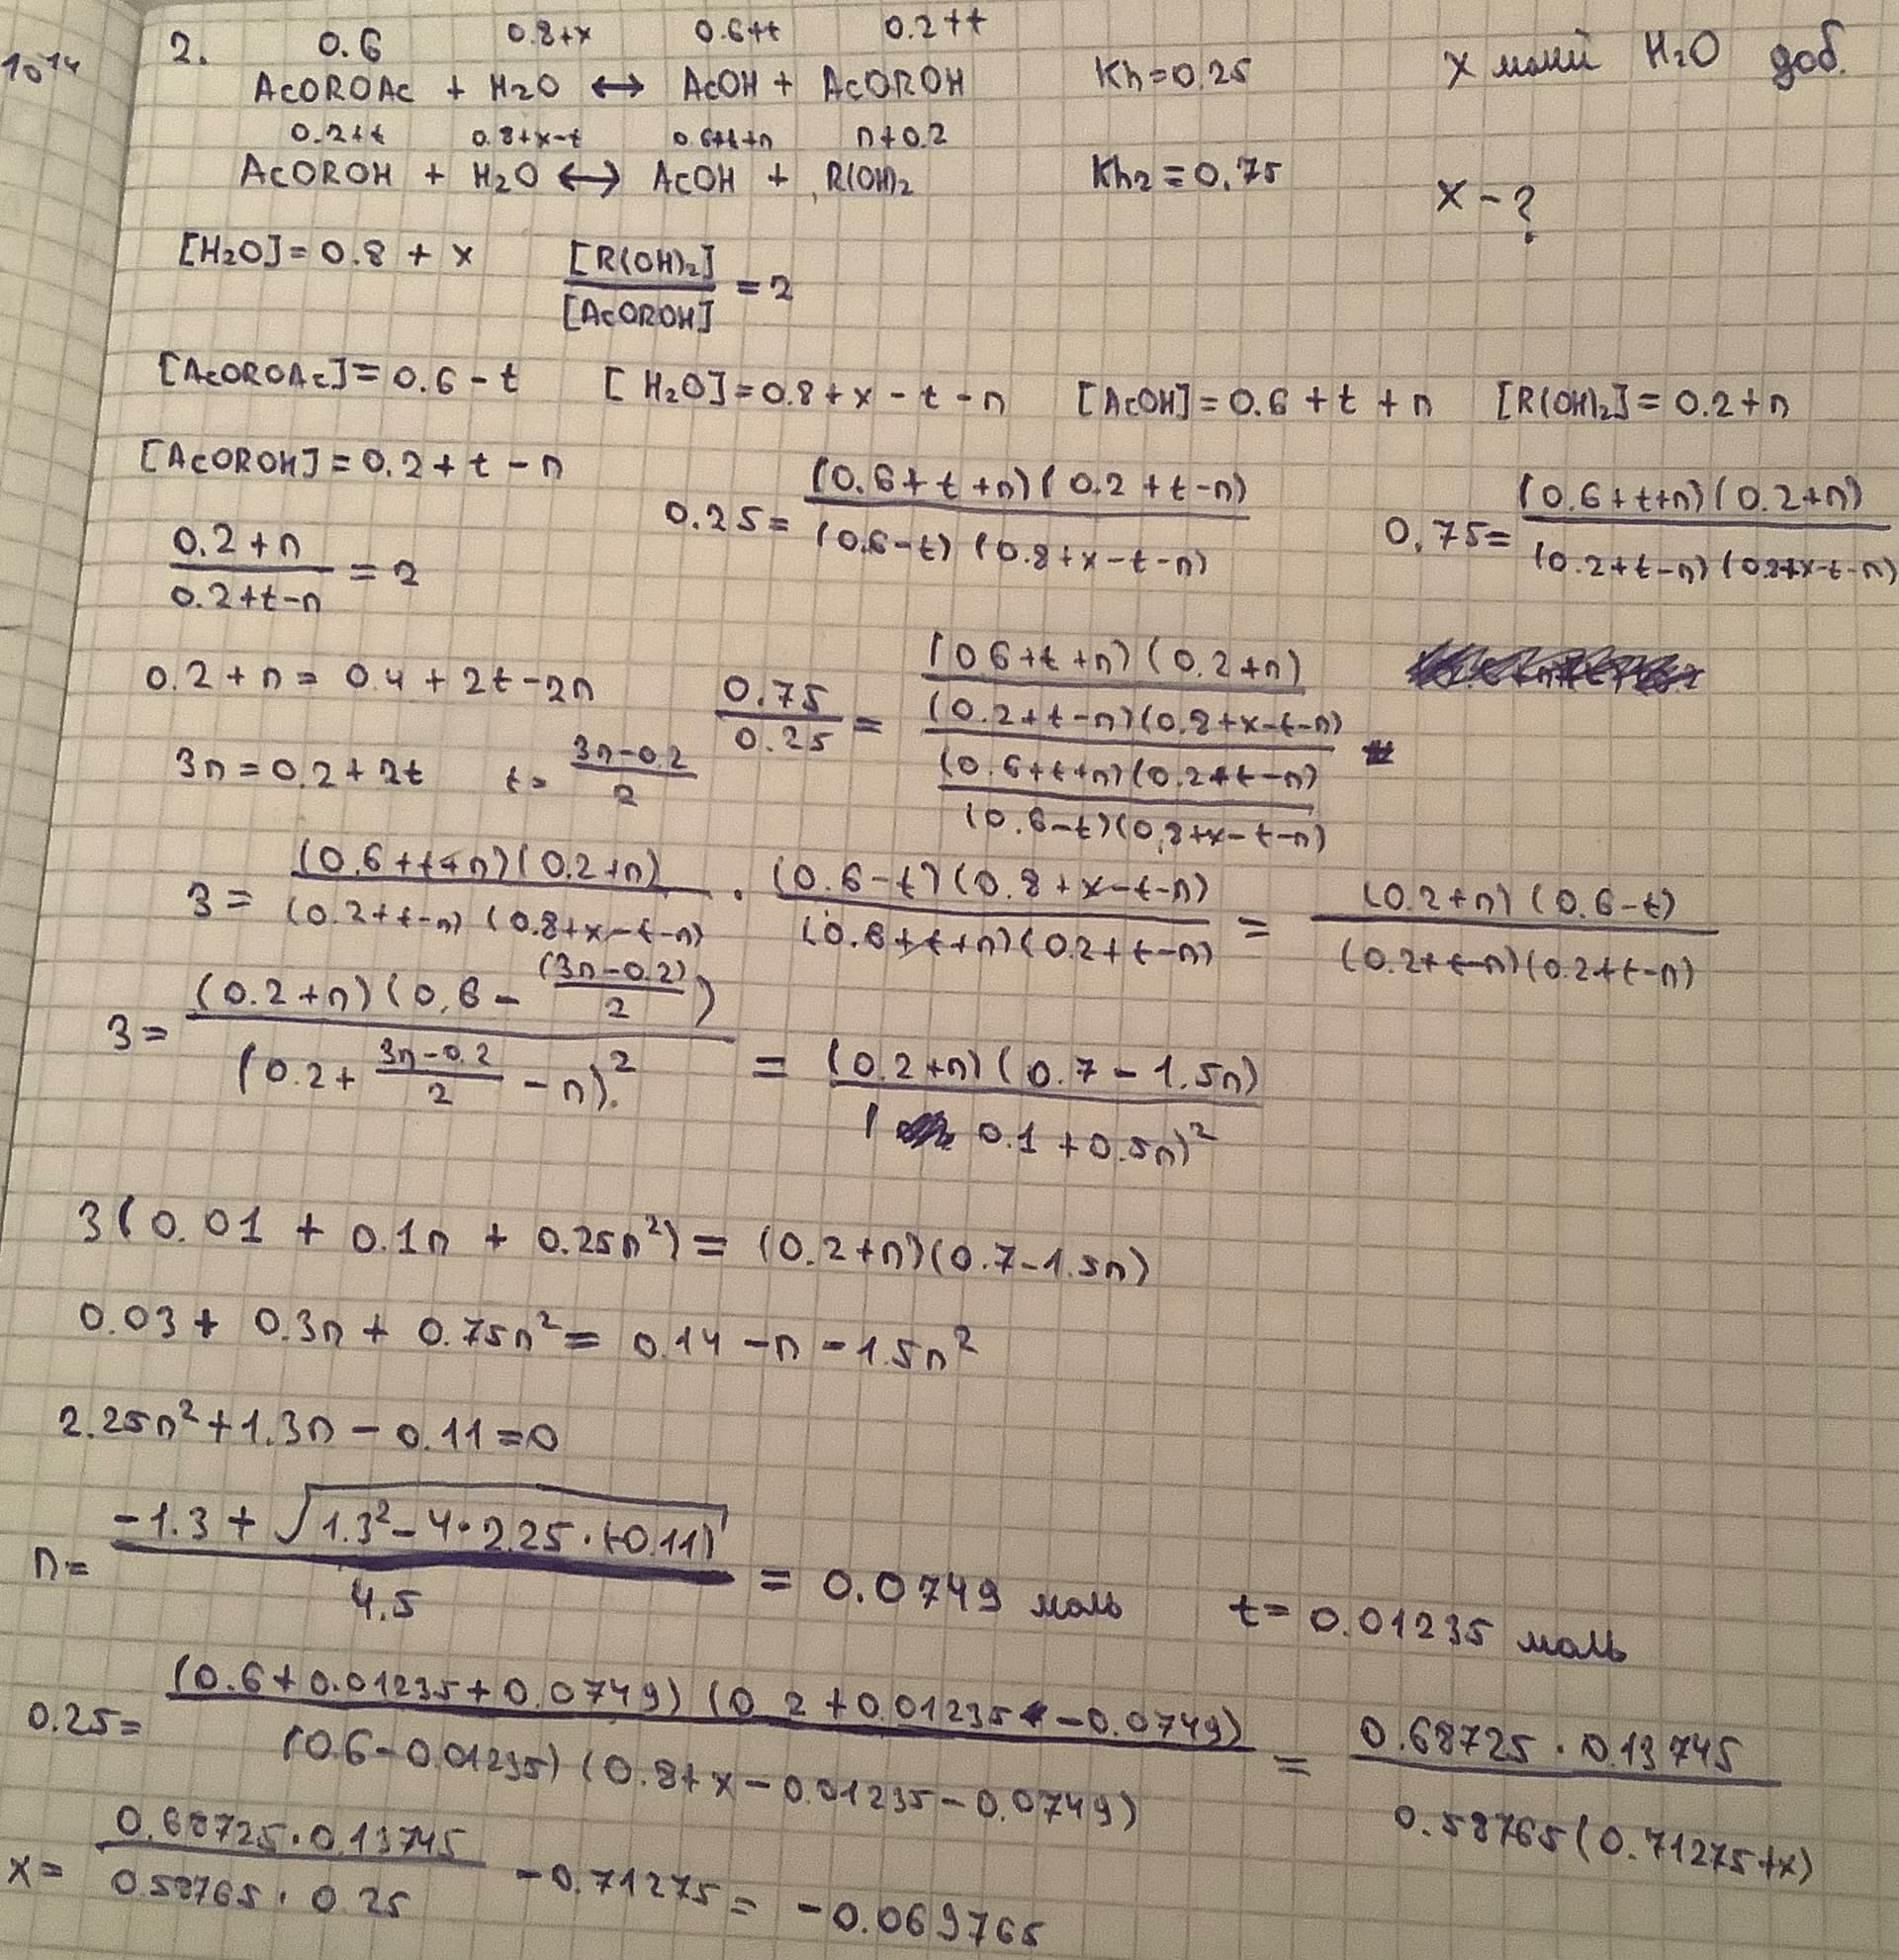 10¹⁴
2.
0.6 0.8+x 0.6+t 0.2+t
AcOROAc + H₂O ↔ AcOH + AcOROH Kh=0.25 x молей H₂O доб.
0.2+t 0.8+x-t 0.6+t+n n+0.2
AcOROH + H₂O ↔ AcOH + R(OH)₂ Kh₂=0.75 x-?
[H₂O]=0.8+x [R(OH)₂]/[AcOROH] =2
[AcOROAc]=0.6-t [H₂O]=0.8+x-t-n [AcOH]=0.6+t+n [R(OH)₂]=0.2+n
[AcOROH]=0.2+t-n 0.25= (0.6+t+n)(0.2+t-n)/(0.6-t)(0.8+x-t-n) 0.75= (0.6+t+n)(0.2+n)/(0.2+t-n)(0.8+x-t-n)
0.2+n/0.2+t-n =2
0.2+n=0.4+2t-2n 0.75/0.25 = (0.6+t+n)(0.2+n)/(0.2+t-n)(0.8+x-t-n) / (0.6+t+n)(0.2+t-n)/(0.6-t)(0.8+x-t-n)
3n=0.2+2t t= 3n-0.2/2
3= (0.6+t+n)(0.2+n)/(0.2+t-n)(0.8+x-t-n) · (0.6-t)(0.8+x-t-n)/(0.6+t+n)(0.2+t-n) = (0.2+n)(0.6-t)/(0.2+t-n)(0.2+t-n)
3= (0.2+n)(0,6- (3n-0.2)/2)/(0.2+ 3n-0.2/2 -n)² = (0.2+n)(0.7-1.5n)/(0.1+0.5n)²
3(0.01+0.1n+0.25n²)=(0.2+n)(0.7-1.5n)
0.03+0.3n+0.75n²=0.14-n-1.5n²
2.25n²+1.3n-0.11=0
n= -1.3+√1.3²-4·2.25·(-0.11)/4.5 = 0.0749 моль t=0.01235 моль
0.25= (0.6+0.01235+0.0749)(0.2+0.01235-0.0749)/(0.6-0.01235)(0.8+x-0.01235-0.0749) = 0.68725·0.13745/0.58765(0.71275+x)
x= 0.68725·0.13745/0.58765·0.25 -0.71275=-0.069765